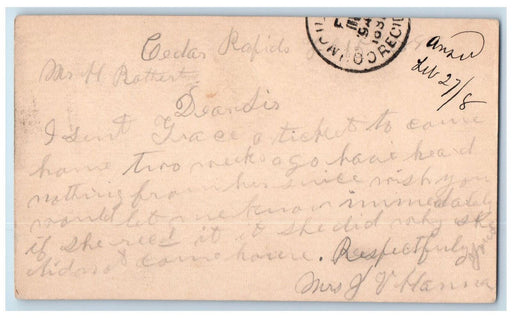 Cedar Rapids
Mr H Rathert
Dear Sir
I sent Grace a ticket to come
home two weeks ago have heard
nothing from her since wish you
would let me know immediately
if she recd it if she did why she
did not come home. Respectfully yours
Mrs J V Hanna
REC'D
Ansd
Feb 27/8